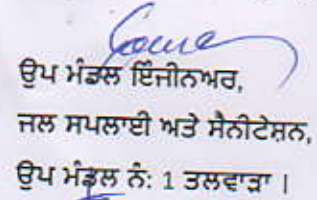 ਉਪ ਮੰਡਲ ਇੰਜੀਨਅਰ,
ਜਲ ਸਪਲਾਈ ਅਤੇ ਸੈਨੀਟੇਸ਼ਨ,
ਉਪ ਮੰਡਲ ਨੰ: 1 ਤਲਵਾੜਾ |